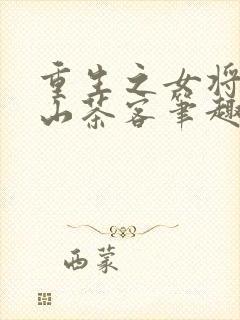 重生之女将
山茶客笔趣
西蒙